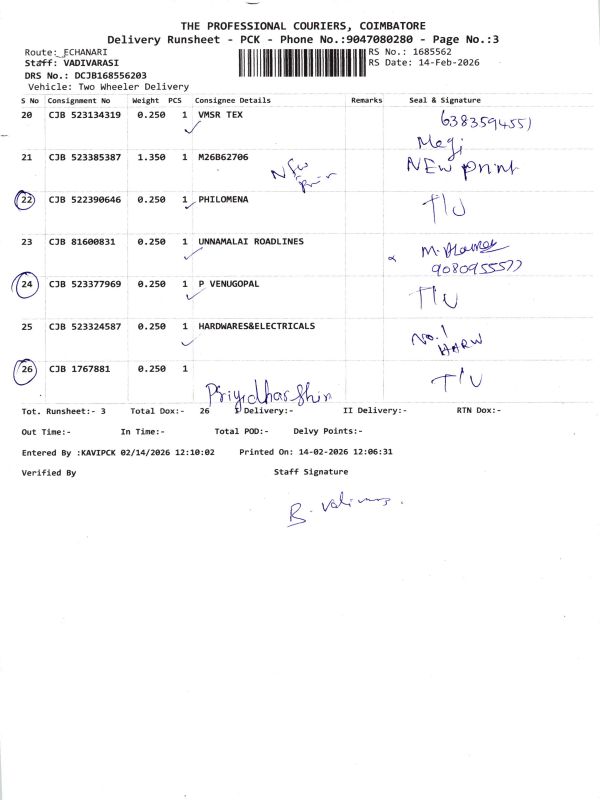 THE PROFESSIONAL COURIERS, COIMBATORE
Delivery Runsheet - PCK - Phone No.:9047080280 - Page No.:3
Route: ECHANARI
RS No.: 1685562
Staff: VADIVARASI
RS Date: 14-Feb-2026
DRS No.: DCJB168556203
Vehicle: Two Wheeler Delivery
S No Consignment No Weight PCS Consignee Details Remarks Seal & Signature
20 CJB 523134319 0.250 1 VMSR TEX 6383594551
Megi
21 CJB 523385387 1.350 1 M26B62706 NEW Print
New Prin
22 CJB 522390646 0.250 1 PHILOMENA T/U
23 CJB 81600831 0.250 1 UNNAMALAI ROADLINES M.
9080955577
24 CJB 523377969 0.250 1 P VENUGOPAL T/U
25 CJB 523324587 0.250 1 HARDWARES&ELECTRICALS No.1
HARW
26 CJB 1767881 0.250 1 T/U
Priyidharshin
Tot. Runsheet:- 3 Total Dox:- 26 I Delivery:- II Delivery:- RTN Dox:-
Out Time:- In Time:- Total POD:- Delvy Points:-
Entered By :KAVIPCK 02/14/2026 12:10:02 Printed On: 14-02-2026 12:06:31
Verified By Staff Signature
B.